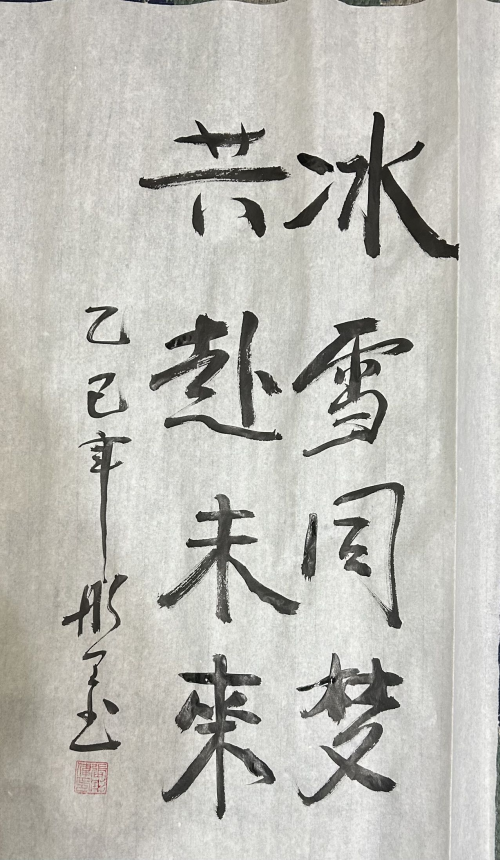 冰雪同梦
共赴未来
乙巳年彤